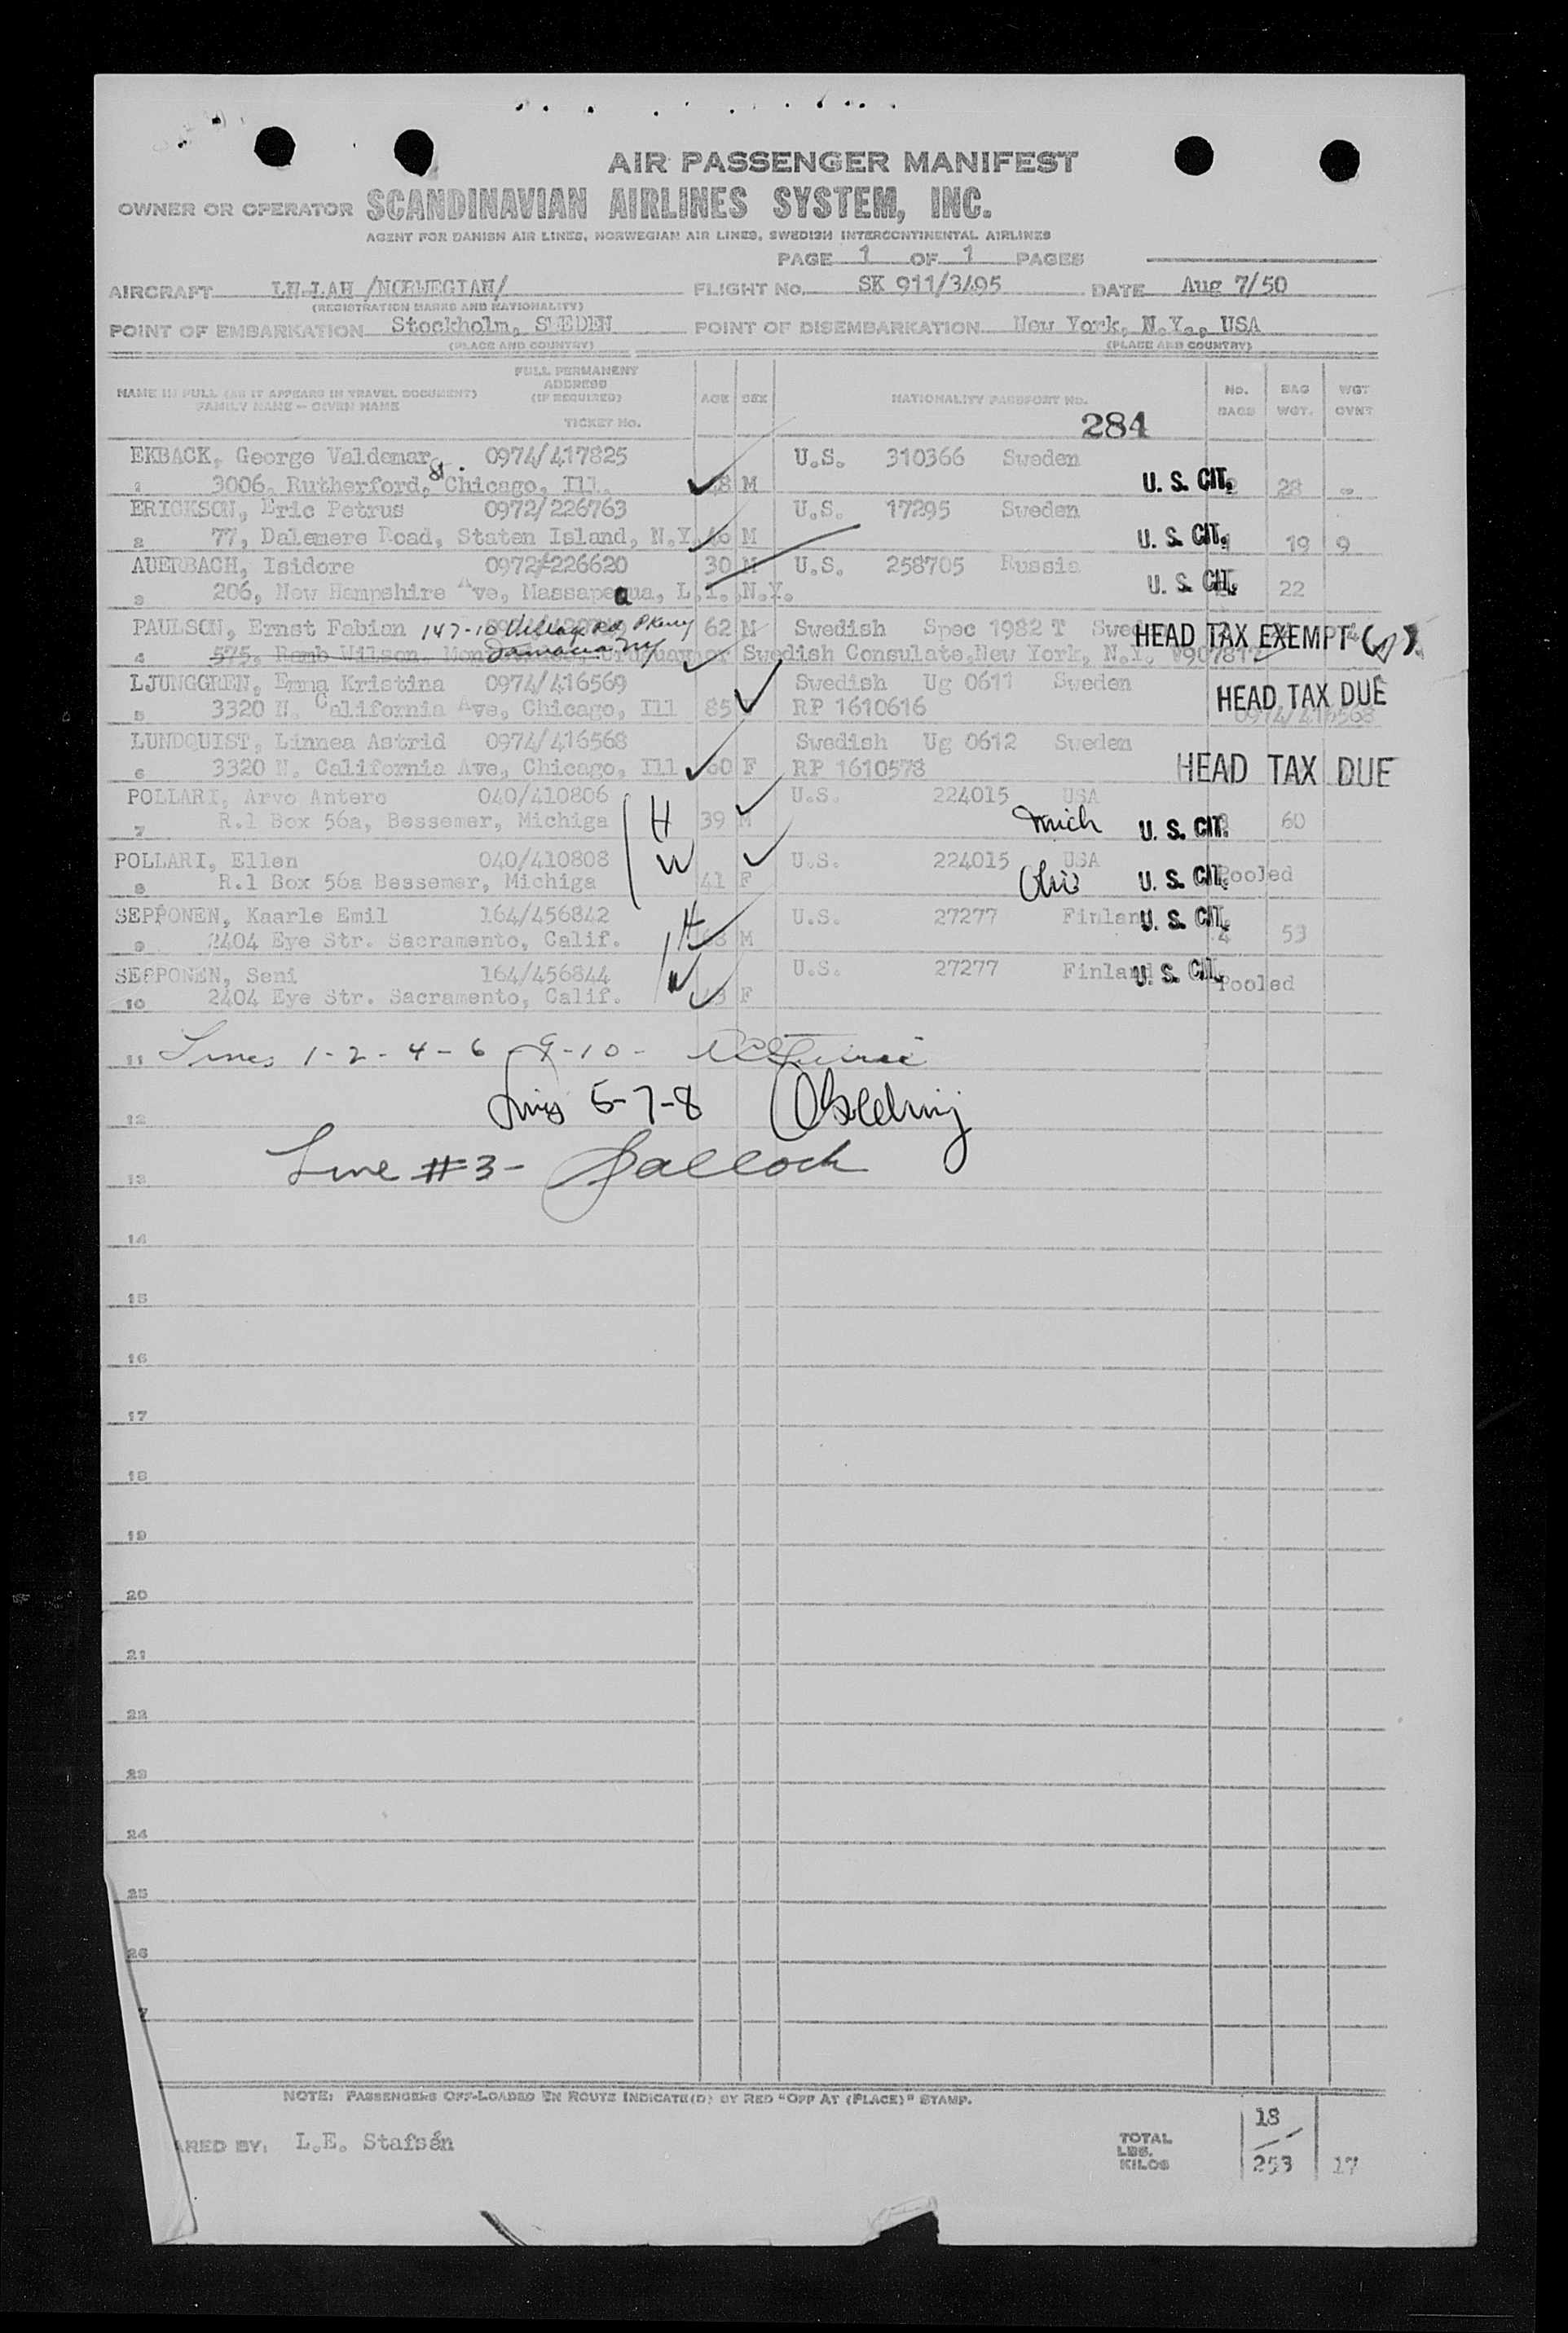 AIR PASSENGER MANIFEST
OWNER OR OPERATOR SCANDINAVIAN AIRLINES SYSTEM, INC.
AGENT FOR DANISH AIR LINES, NORWEGIAN AIR LINES, SWEDISH INTERCONTINENTAL AIRLINES
PAGE 1 OF 1 PAGES
AIRCRAFT LN LAH /NORWEGIAN/ FLIGHT No. SK 911/3495 DATE Aug 7/50
(REGISTRATION MARKS AND NATIONALITY)
POINT OF EMBARKATION Stockholm, SWEDEN POINT OF DISEMBARKATION New York, N.Y., USA
(PLACE AND COUNTRY) (PLACE AND COUNTRY)
NAME IN FULL (AS IT APPEARS IN TRAVEL DOCUMENT) FULL PERMANENT ADDRESS (IF REQUIRED) AGE SEX NATIONALITY PASSPORT No. No. BAGS BAG WGT. WGT OVNT
FAMILY NAME - GIVEN NAME TICKET No. 284
EKBACK, George Valdemar 0974/417825 U.S. 310366 Sweden
1 3006, Rutherford, St. Chicago, Ill. M U. S. CIT. 28
ERICKSON, Eric Petrus 0972/226763 U.S. 17295 Sweden
2 77, Dalemere Road, Staten Island, N.Y. M U. S. CIT. 19 9
AUERBACH, Isidore 0972/226620 30 M U.S. 258705 Russia
3 206, New Hampshire Ave, Massapequa, L.I. N.Y. U. S. CIT. 22
PAULSON, Ernst Fabian 147-10 Village Rd Pkwy 62 M Swedish Spec 1982 T HEAD TAX EXEMPT
4 575, Jamaica NY Swedish Consulate, New York, N.Y.
LJUNGGREN, Emma Kristina 0974/416569 Swedish Ug 0611 Sweden HEAD TAX DUE
5 3320 N. California Ave, Chicago, Ill 85 RP 1610616 0974/416568
LUNDQUIST, Linnea Astrid 0974/416568 Swedish Ug 0612 Sweden
6 3320 N. California Ave, Chicago, Ill 60 F RP 1610578 HEAD TAX DUE
POLLARI, Arvo Antero 040/410806 U.S. 224015 USA
7 R.1 Box 56a, Bessemer, Michiga H 39 M Mich U. S. CIT. 60
POLLARI, Ellen 040/410808 W U.S. 224015 USA
8 R.1 Box 56a Bessemer, Michiga 41 F Ohio U. S. CIT. Pooled
SEPPONEN, Kaarle Emil 164/456842 H U.S. 27277 Finland U. S. CIT.
9 2404 Eye Str. Sacramento, Calif. M 4 53
SEPPONEN, Seni 164/456844 W U.S. 27277 Finland U. S. CIT.
10 2404 Eye Str. Sacramento, Calif. F Pooled
11 Lines 1-2-4-6-9-10-
12 Lines 5-7-8
13 Line #3-
14
15
16
17
18
19
20
21
22
23
24
25
26
7
NOTE: PASSENGERS OFF-LOADED EN ROUTE INDICATE(D) BY RED "OFF AT (PLACE)" STAMP.
ARED BY: L.E. Stafsén TOTAL LBS. KILOS 18 253 17